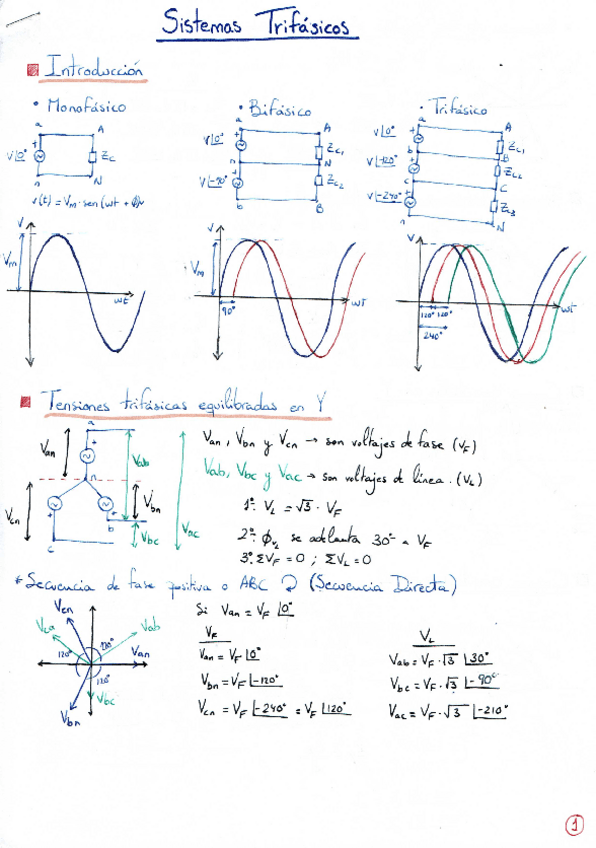 Sistemas Trifásicos
Introducción
• Monofásico
• Bifásico
• Trifásico
a
A
+
V∠0°
Zc
n
N
v(t) = Vm · sen(wt + ϕ)
a
A
V∠0°
+
Zc1
n
N
V∠-90°
+
Zc2
b
B
a
A
V∠0°
+
Zc1
b
B
V∠-120°
+
Zc2
c
C
V∠-240°
+
Zc3
n
N
V
Vm
wt
V
Vm
90°
wt
V
120° 120°
240°
wt
Tensiones trifásicas equilibradas en Y
a
+
Van
Vab
n
Vcn
Vbn
b
c
Vbc
Vac
Van, Vbn y Vcn → son voltajes de fase (VF)
Vab, Vbc y Vac → son voltajes de línea. (VL)
1º: VL = √3 · VF
2º: ϕVL se adelanta 30º a VF
3º: ΣVF = 0 ; ΣVL = 0
* Secuencia de fase positiva o ABC ↻ (Secuencia Directa)
Vcn
Vca
Vab
120°
120°
Van
120°
Vbc
Vbn
Si Van = VF ∠0°
VF
Van = VF ∠0°
Vbn = VF ∠-120°
Vcn = VF ∠-240° = VF ∠120°
VL
Vab = VF · √3 ∠30°
Vbc = VF · √3 ∠-90°
Vac = VF · √3 ∠-210°
1